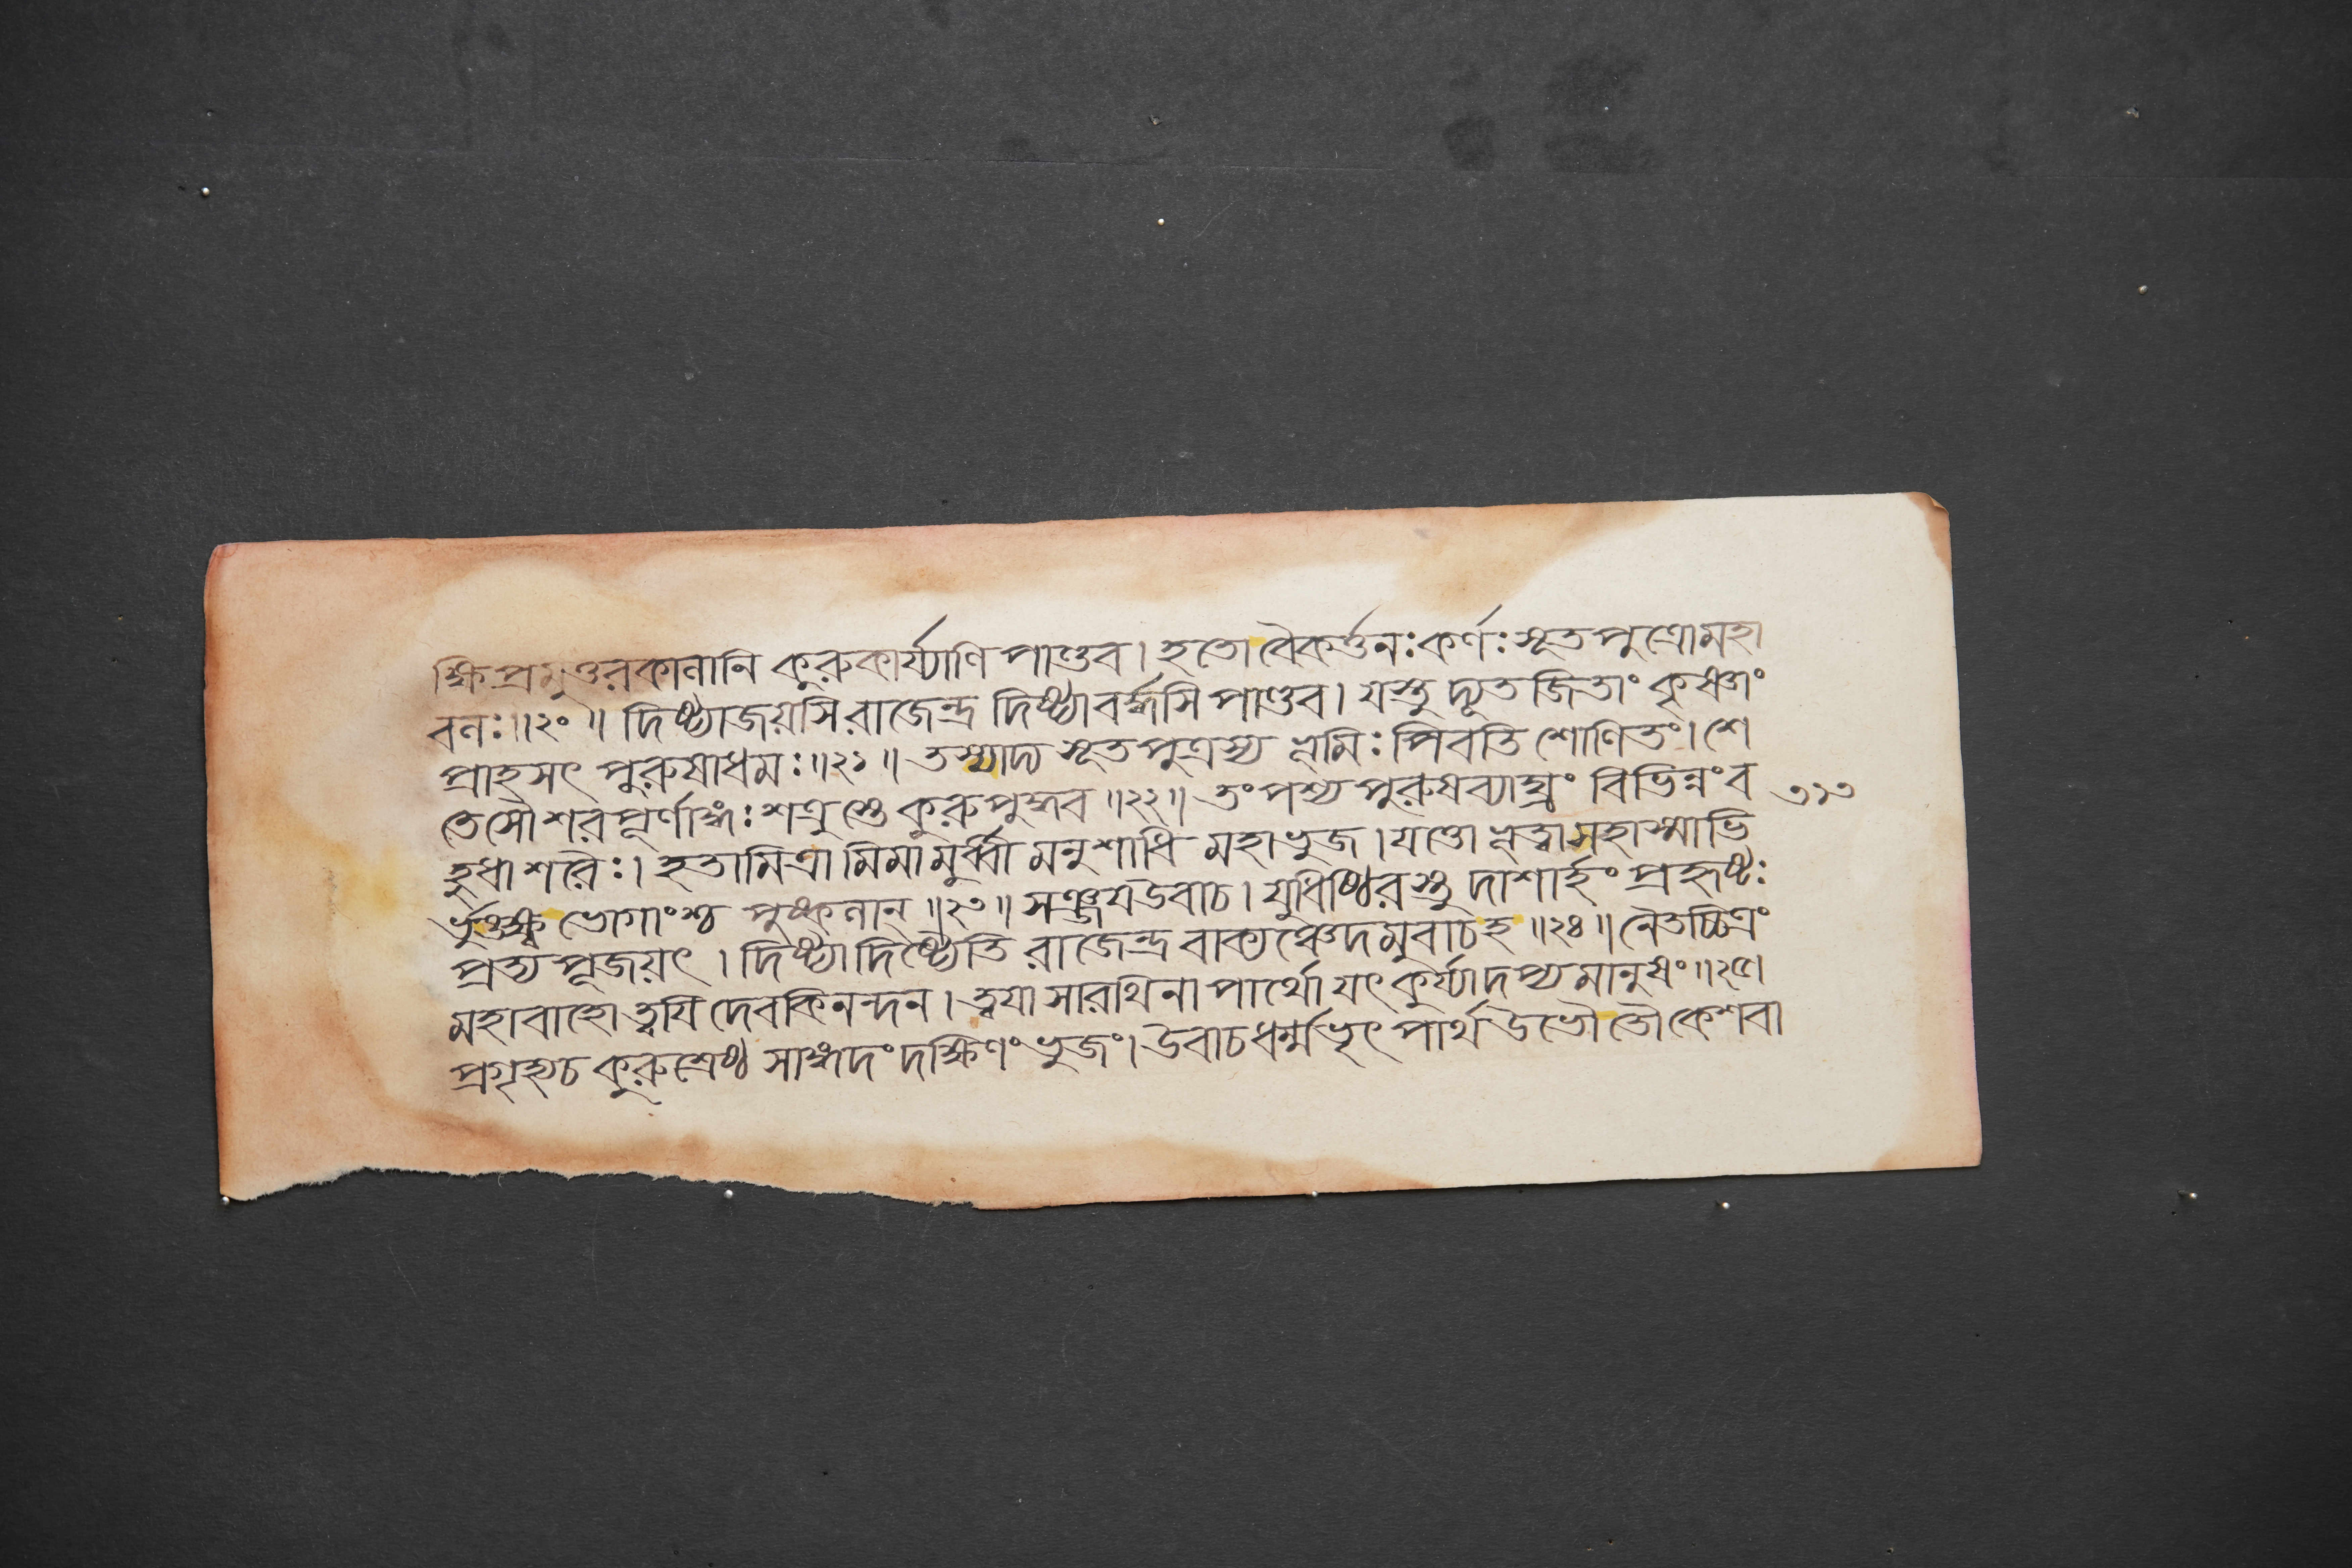 ক্ষিপ্রমুত্তরকালানি কুরুকার্য্যাণি পাণ্ডব। হতো বৈকর্ত্তনঃ কর্ণঃ সূতপুত্রো মহা
বলঃ॥২০॥ দিষ্ট্যা জয়সি রাজেন্দ্র দিষ্ট্যা বর্দ্ধসি পাণ্ডব। যস্তু দ্যূতজিতাং কৃষ্ণাং
প্রাহসৎ পুরুষাধমঃ॥২১॥ তস্যাদ্য সূতপুত্রস্য ভূমিঃ পিবতি শোণিতং। শে
তেসৌ শরপূর্ণাঙ্গঃ শত্রুস্তে কুরুপুঙ্গব॥২২॥ তং পশ্য পুরুষব্যাঘ্রং বিভিন্নং ব
হুধা শরৈঃ। হতামিত্রামিমামুর্ব্বীমনুশাধি মহাভুজ। যত্তো ভূত্বা সহাস্মাভি
র্ভুঙ্ক্ষ্ব ভোগাংশ্চ পুষ্কলান্॥২৩॥ সঞ্জয উবাচ। যুধিষ্ঠিরস্তু দাশার্হং প্রহৃষ্টঃ
প্রত্যপূজয়ৎ। দিষ্ট্যা দিষ্ট্যেতি রাজেন্দ্র বাক্যঞ্চেদমুবাচ হ॥২৪॥ নৈতচ্চিত্রং
মহাবাহো ত্বযি দেবকিনন্দন। ত্বযা সারথিনা পার্থো যৎ কুর্য্যাদপ্যমানুষং॥২৫।
প্রগৃহ্য চ কুরুশ্রেষ্ঠ সাঙ্গদং দক্ষিণং ভুজং। উবাচ ধর্ম্মভৃৎ পার্থ উভৌ তৌ কেশবা
৩১৩